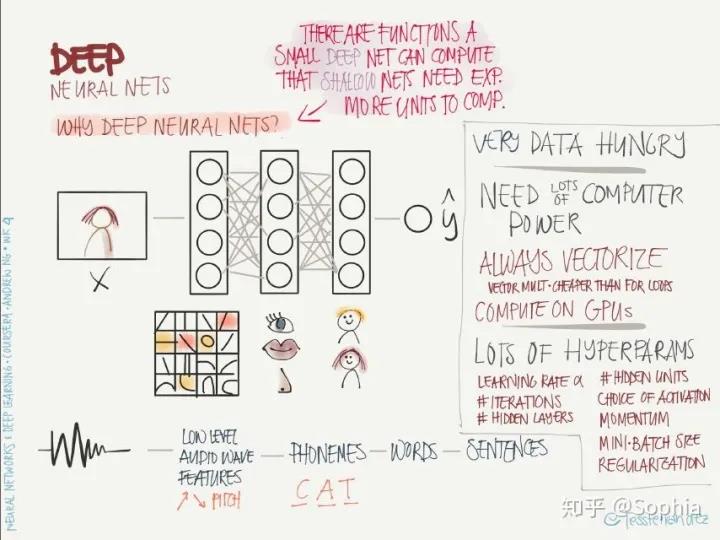 DEEP
NEURAL NETS
WHY DEEP NEURAL NETS?
THERE ARE FUNCTIONS A
SMALL DEEP NET CAN COMPUTE
THAT SHALLOW NETS NEED EXP.
MORE UNITS TO COMP.
X
ŷ
VERY DATA HUNGRY
NEED LOTS OF COMPUTER
POWER
ALWAYS VECTORIZE
VECTOR MULT. CHEAPER THAN FOR LOOPS
COMPUTE ON GPUs
LOTS OF HYPERPARAMS
LEARNING RATE α
# ITERATIONS
# HIDDEN LAYERS
# HIDDEN UNITS
CHOICE OF ACTIVATION
MOMENTUM
MINI-BATCH SIZE
REGULARIZATION
LOW LEVEL
AUDIO WAVE
FEATURES
↗ ↘ PITCH
PHONEMES
C A T
WORDS
SENTENCES
NEURAL NETWORKS & DEEP LEARNING · COURSERA · ANDREW NG · WK 4
知乎 @Sophia